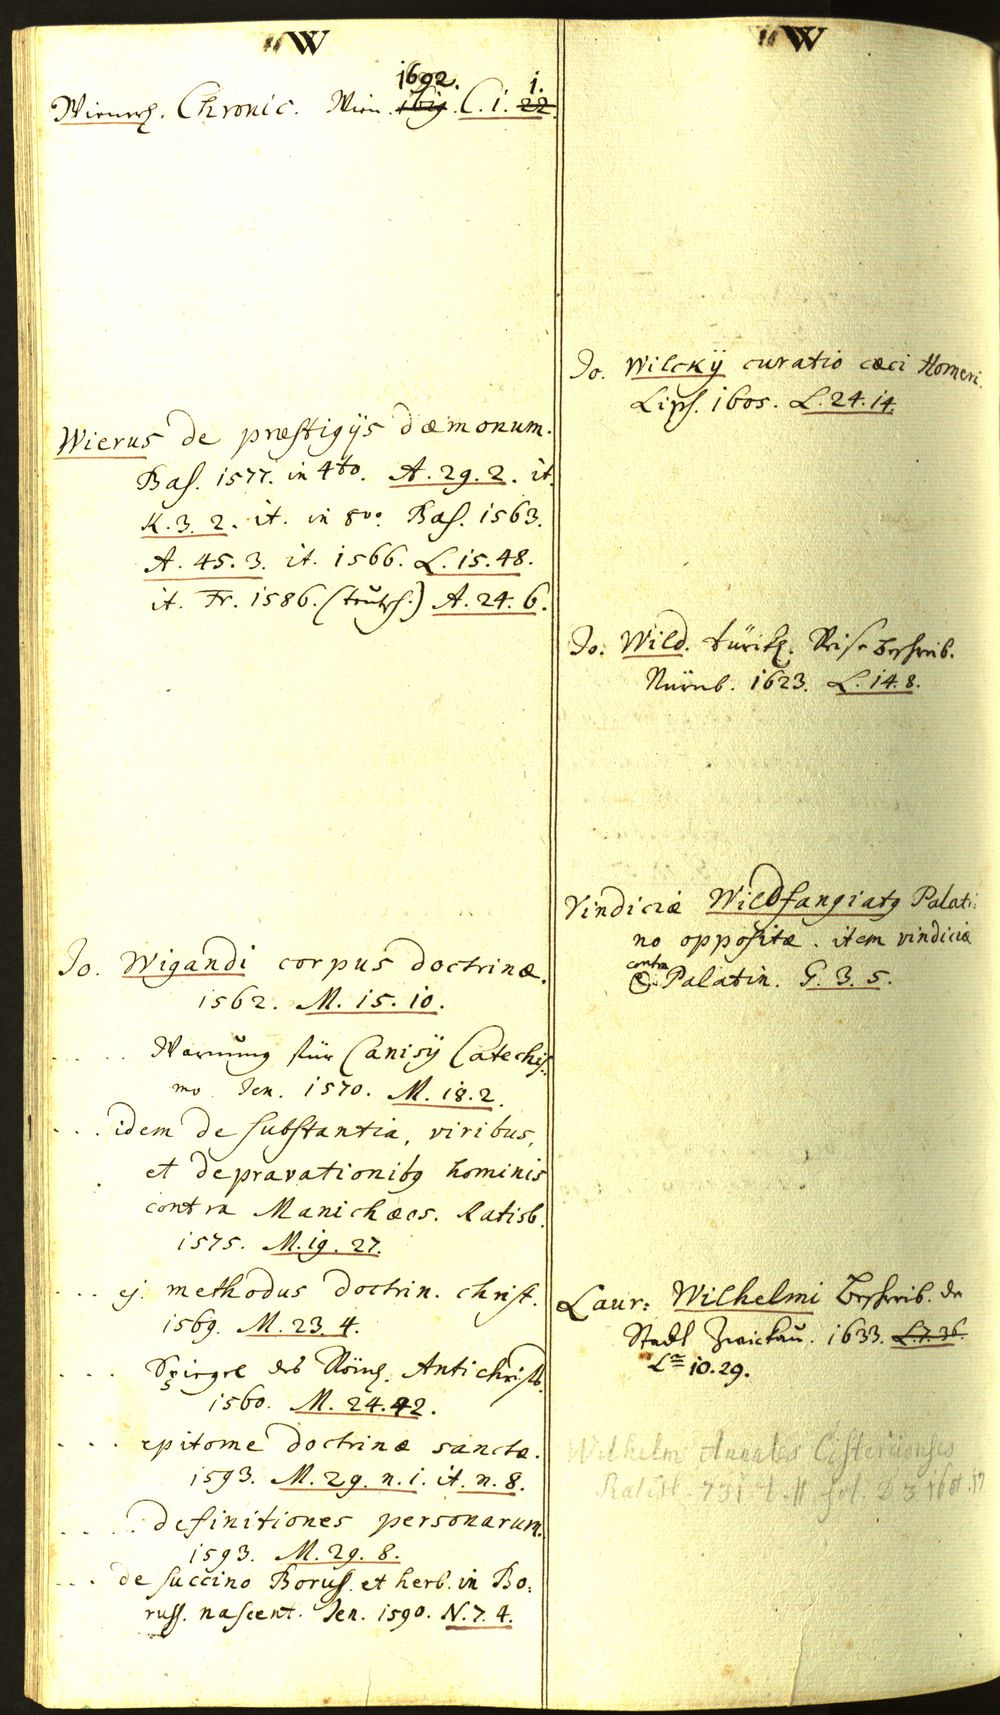 W
1692. 1.
Wienersch. Chronic. Wien. 1619. C. 1. 22.
Wierus de præstigijs dæmonum.
Bas. 1577. in 4to. A. 29. 2. it.
K. 3. 2. it. in 8vo. Bas. 1563.
A. 45. 3. it. 1566. L. 15. 48.
it. Fr. 1586. (teutsch.) A. 24. 6.
Jo. Wigandi corpus doctrinæ.
1562. M. 15. 10.
. . . . . Warnung für Canisij Catechis-
mo Jen. 1570. M. 18. 2.
. . . idem de substantia, viribus,
et depravationibus hominis
contra Manichæos. Ratisb.
1575. M. 19. 27.
. . . ej. methodus doctrin. christ.
1569. M. 23. 4.
. . . . Spiegel des Röm. Antichrists.
1560. M. 24. 42.
. . . epitome doctrinæ sanctæ.
1593. M. 29. n. 1. it. n. 8.
. . . . definitiones personarum.
1593. M. 29. 8.
. . . de succino Boruss. et herb. in Bo:
russ. nascent. Jen. 1590. N. 7. 4.
W
Jo. Wilckij curatio cæci Homeri.
Lips. 1605. L. 24. 14.
Jo. Wild. türkisch. Reise Beschreib.
Nürnb. 1623. L. 14. 8.
Vindiciæ Wildfangiatus Palati:
no oppositæ. item vindiciæ
contra
Palatin. G. 3. 5.
Laur: Wilhelmi Beschreib. der
Stadt Zwickau. 1633. L. 7. 36.
10. 29.
Wilhelm Annales Cisterciensis
Ratisb.